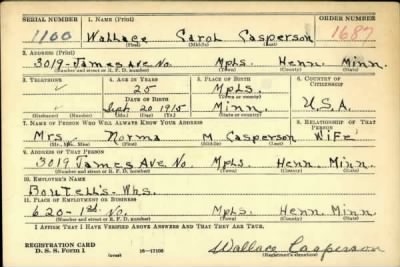 SERIAL NUMBER 1. NAME (Print) ORDER NUMBER
1100 Wallace Carol Casperson 1687
(First) (Middle) (Last)
2. ADDRESS (Print)
3019- James Ave. No. Mpls. Henn. Minn.
(Number and street or R. F. D. number) (Town) (County) (State)
3. TELEPHONE 4. AGE IN YEARS 5. PLACE OF BIRTH 6. COUNTRY OF CITIZENSHIP
25 Mpls.
DATE OF BIRTH (Town or county)
Sept. 20 1915 Minn. U.S.A.
(Exchange) (Number) (Mo.) (Day) (Yr.) (State or country)
7. NAME OF PERSON WHO WILL ALWAYS KNOW YOUR ADDRESS 8. RELATIONSHIP OF THAT PERSON
Mrs. Norma M Casperson Wife
(Mr., Mrs., Miss) (First) (Middle) (Last)
9. ADDRESS OF THAT PERSON
3019 James Ave No. Mpls. Henn. Minn.
(Number and street or R. F. D. number) (Town) (County) (State)
10. EMPLOYER'S NAME
Boutell's- Whs.
11. PLACE OF EMPLOYMENT OR BUSINESS
620- 1st. No. Mpls. Henn. Minn.
(Number and street or R. F. D. number) (Town) (County) (State)
I AFFIRM THAT I HAVE VERIFIED ABOVE ANSWERS AND THAT THEY ARE TRUE.
REGISTRATION CARD
D. S. S. Form 1 (over) Wallace Casperson
(Registrant's signature)